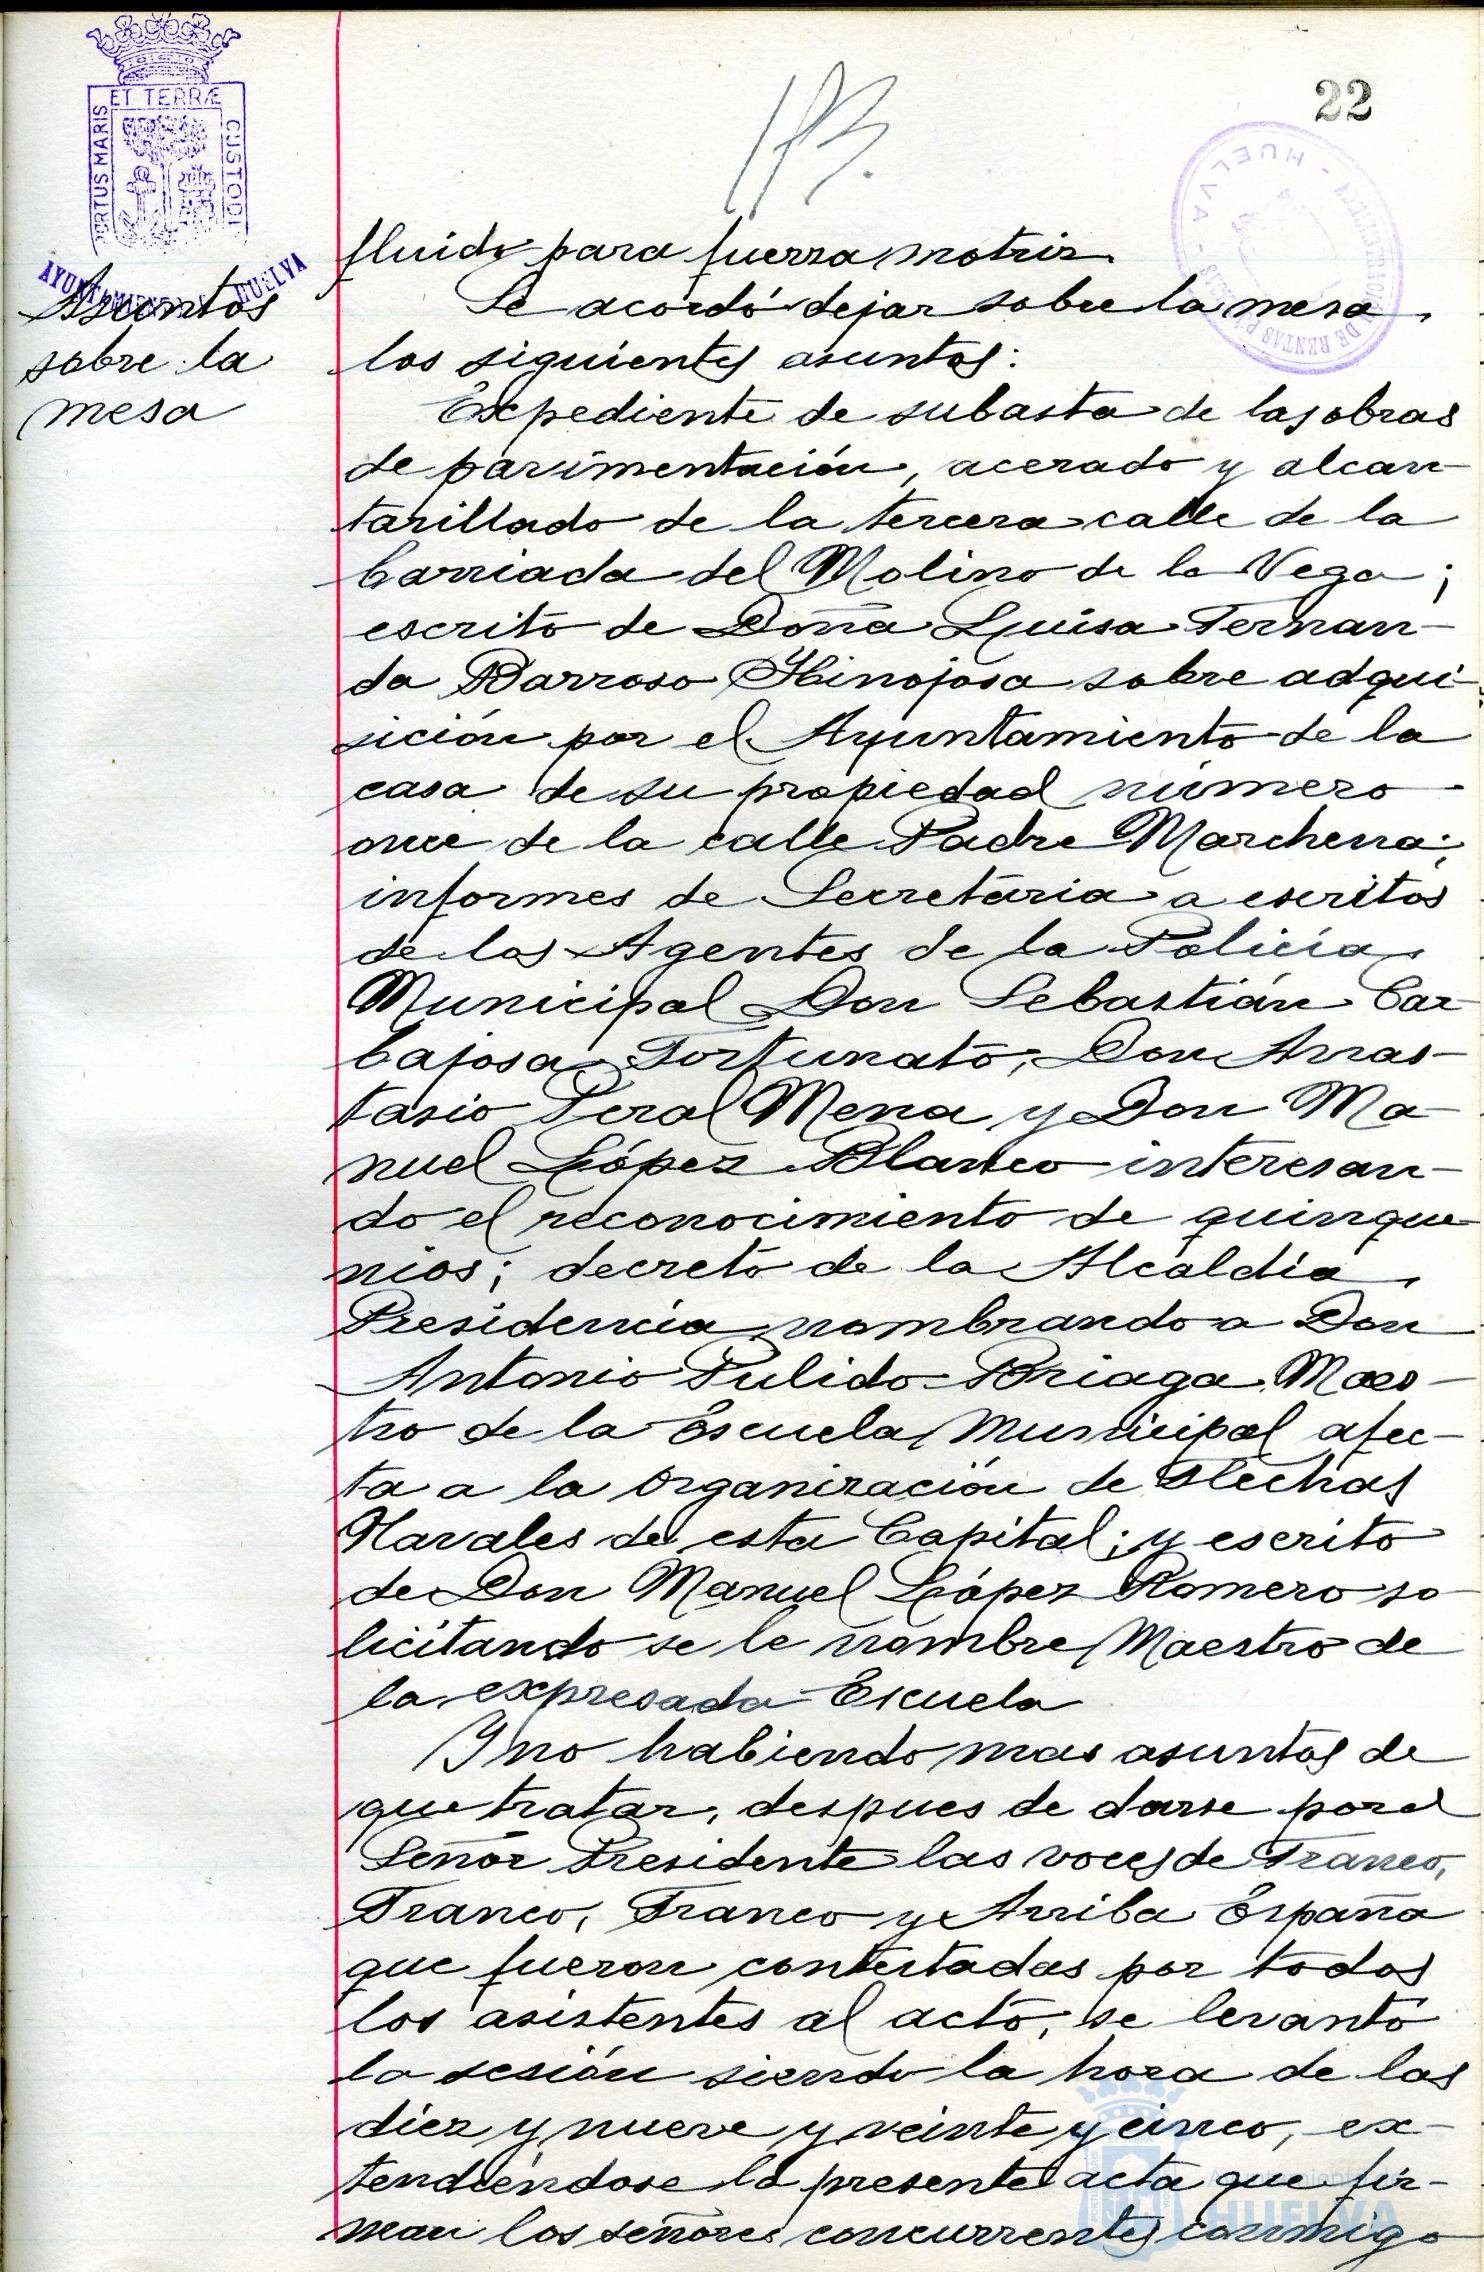 22
PORTUS MARIS
ET TERRÆ
CUSTODI
AYUNTAMIENTO DE HUELVA
HUELVA
DE RENTAS
Asuntos
sobre la
mesa
fluido para fuerza motriz.
Se acordó dejar sobre la mesa
los siguientes asuntos:
Expediente de subasta de las obras
de pavimentación, acerado y alcan-
tarillado de la tercera calle de la
barriada del Molino de la Vega;
escrito de Doña Luisa Fernan-
da Barroso Hinojosa sobre adqui-
sición por el Ayuntamiento de la
casa de su propiedad número
once de la calle Padre Marchena;
informes de Secretaria a escritos
de los Agentes de la Policía
Municipal Don Sebastián Car-
bajosa Fortunato, Don Anas-
tasio Peral Mena y Don Ma-
nuel López Blanco interesan-
do el reconocimiento de quinque-
nios; decreto de la Alcaldía
Presidencia nombrando a Don
Antonio Pulido Briaga Maes-
tro de la Escuela Municipal afec-
ta a la Organización de Flechas
Navales de esta Capital; y escrito
de Don Manuel López Romero so-
licitando se le nombre Maestro de
la expresada Escuela
Y no habiendo mas asuntos de
que tratar, despues de darse por el
Señor Presidente las voces de Franco,
Franco, Franco y Arriba España
que fueron contestadas por todos
los asistentes al acto, se levantó
la sesión siendo la hora de las
diez y nueve y veinte y cinco, ex-
tendiéndose la presente acta que fir-
man los señores concurrentes conmigo
Ayuntamiento de
HUELVA